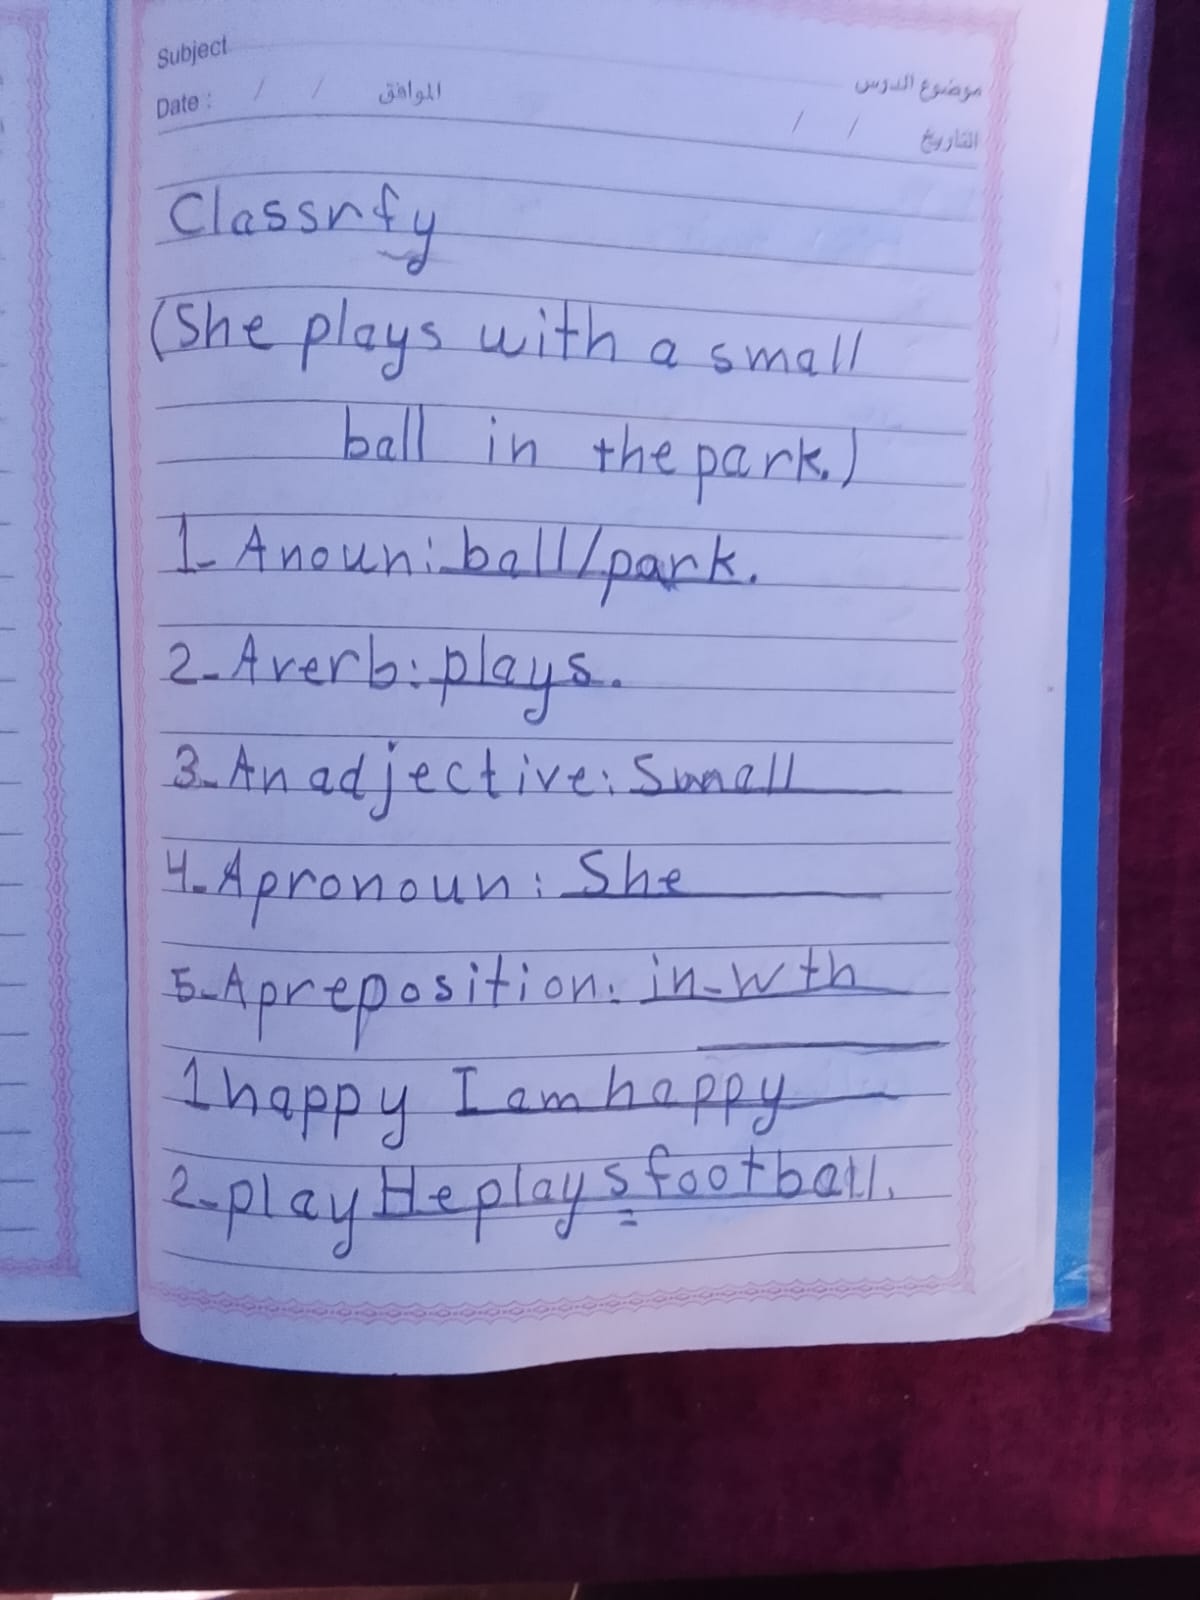 Subject موضوع الدرس
Date : / / الموافق / / التاريخ
Classrfy
(She plays with a small
ball in the park.)
1- A noun: ball/park.
2- A verb: plays.
3- An adjective: Small
4- A pronoun: She
5- A preposition: in-wth
1 happy I am happy
2- play He plays football.